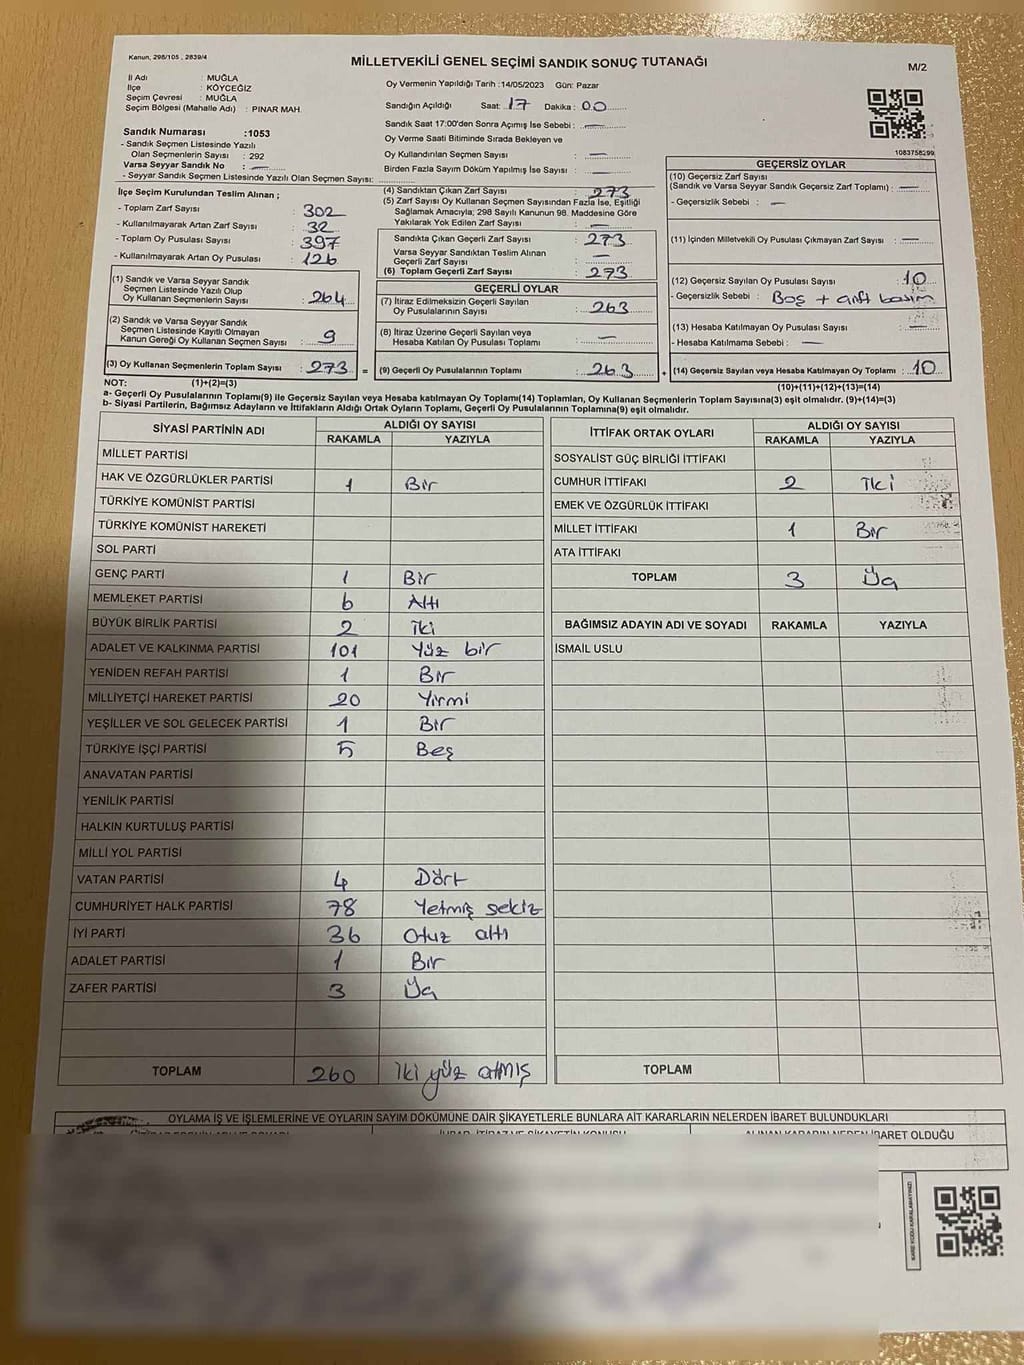 Kanun, 298/105 , 2839/4
MİLLETVEKİLİ GENEL SEÇİMİ SANDIK SONUÇ TUTANAĞI
M/2
İl Adı : MUĞLA
İlçe : KÖYCEĞİZ
Seçim Çevresi : MUĞLA
Seçim Bölgesi (Mahalle Adı) : PINAR MAH.
Sandık Numarası :1053
- Sandık Seçmen Listesinde Yazılı
Olan Seçmenlerin Sayısı : 292
Varsa Seyyar Sandık No : —
- Seyyar Sandık Seçmen Listesinde Yazılı Olan Seçmen Sayısı:
Oy Vermenin Yapıldığı Tarih :14/05/2023 Gün: Pazar
Sandığın Açıldığı Saat: 17 Dakika : 00
Sandık Saat 17:00'den Sonra Açılmış İse Sebebi : —
Oy Verme Saati Bitiminde Sırada Bekleyen ve
Oy Kullandırılan Seçmen Sayısı : —
Birden Fazla Sayım Döküm Yapılmış İse Sayısı : —
1083758299
İlçe Seçim Kurulundan Teslim Alınan ;
- Toplam Zarf Sayısı : 302
- Kullanılmayarak Artan Zarf Sayısı : 32
- Toplam Oy Pusulası Sayısı : 397
- Kullanılmayarak Artan Oy Pusulası : 126
(1) Sandık ve Varsa Seyyar Sandık
Seçmen Listesinde Yazılı Olup
Oy Kullanan Seçmenlerin Sayısı : 264
(2) Sandık ve Varsa Seyyar Sandık
Seçmen Listesinde Kayıtlı Olmayan
Kanun Gereği Oy Kullanan Seçmen Sayısı : 9
(3) Oy Kullanan Seçmenlerin Toplam Sayısı : 273 =
(4) Sandıktan Çıkan Zarf Sayısı : 273
(5) Zarf Sayısı Oy Kullanan Seçmen Sayısından Fazla İse, Eşitliği
Sağlamak Amacıyla; 298 Sayılı Kanunun 98. Maddesine Göre
Yakılarak Yok Edilen Zarf Sayısı : —
Sandıkta Çıkan Geçerli Zarf Sayısı : 273
Varsa Seyyar Sandıktan Teslim Alınan
Geçerli Zarf Sayısı : —
(6) Toplam Geçerli Zarf Sayısı : 273
GEÇERLİ OYLAR
(7) İtiraz Edilmeksizin Geçerli Sayılan
Oy Pusulalarının Sayısı : 263
(8) İtiraz Üzerine Geçerli Sayılan veya
Hesaba Katılan Oy Pusulası Toplamı : —
(9) Geçerli Oy Pusulalarının Toplamı : 263 +
GEÇERSİZ OYLAR
(10) Geçersiz Zarf Sayısı
(Sandık ve Varsa Seyyar Sandık Geçersiz Zarf Toplamı) : —
- Geçersizlik Sebebi : —
(11) İçinden Milletvekili Oy Pusulası Çıkmayan Zarf Sayısı : —
(12) Geçersiz Sayılan Oy Pusulası Sayısı : 10
- Geçersizlik Sebebi : Boş + çift basım
(13) Hesaba Katılmayan Oy Pusulası Sayısı : —
- Hesaba Katılmama Sebebi : —
(14) Geçersiz Sayılan veya Hesaba Katılmayan Oy Toplamı : 10
NOT: (1)+(2)=(3) (10)+(11)+(12)+(13)=(14)
a- Geçerli Oy Pusulalarının Toplamı(9) ile Geçersiz Sayılan veya Hesaba katılmayan Oy Toplamı(14) Toplamları, Oy Kullanan Seçmenlerin Toplam Sayısına(3) eşit olmalıdır. (9)+(14)=(3)
b- Siyasi Partilerin, Bağımsız Adayların ve İttifakların Aldığı Ortak Oyların Toplamı, Geçerli Oy Pusulalarının Toplamına(9) eşit olmalıdır.
SİYASİ PARTİNİN ADI ALDIĞI OY SAYISI
RAKAMLA YAZIYLA
MİLLET PARTİSİ
HAK VE ÖZGÜRLÜKLER PARTİSİ 1 Bir
TÜRKİYE KOMÜNİST PARTİSİ
TÜRKİYE KOMÜNİST HAREKETİ
SOL PARTİ
GENÇ PARTİ 1 Bir
MEMLEKET PARTİSİ 6 Altı
BÜYÜK BİRLİK PARTİSİ 2 İki
ADALET VE KALKINMA PARTİSİ 101 Yüz bir
YENİDEN REFAH PARTİSİ 1 Bir
MİLLİYETÇİ HAREKET PARTİSİ 20 Yirmi
YEŞİLLER VE SOL GELECEK PARTİSİ 1 Bir
TÜRKİYE İŞÇİ PARTİSİ 5 Beş
ANAVATAN PARTİSİ
YENİLİK PARTİSİ
HALKIN KURTULUŞ PARTİSİ
MİLLİ YOL PARTİSİ
VATAN PARTİSİ 4 Dört
CUMHURİYET HALK PARTİSİ 78 Yetmiş sekiz
İYİ PARTİ 36 Otuz altı
ADALET PARTİSİ 1 Bir
ZAFER PARTİSİ 3 Üç
TOPLAM 260 iki yüz atmış
İTTİFAK ORTAK OYLARI ALDIĞI OY SAYISI
RAKAMLA YAZIYLA
SOSYALİST GÜÇ BİRLİĞİ İTTİFAKI
CUMHUR İTTİFAKI 2 İki
EMEK VE ÖZGÜRLÜK İTTİFAKI
MİLLET İTTİFAKI 1 Bir
ATA İTTİFAKI
TOPLAM 3 Üç
BAĞIMSIZ ADAYIN ADI VE SOYADI RAKAMLA YAZIYLA
İSMAİL USLU
TOPLAM
OYLAMA İŞ VE İŞLEMLERİNE VE OYLARIN SAYIM DÖKÜMÜNE DAİR ŞİKAYETLERLE BUNLARA AİT KARARLARIN NELERDEN İBARET BULUNDUKLARI
İBARET OLDUĞU
KARE KODU KARALAMAYINIZ!